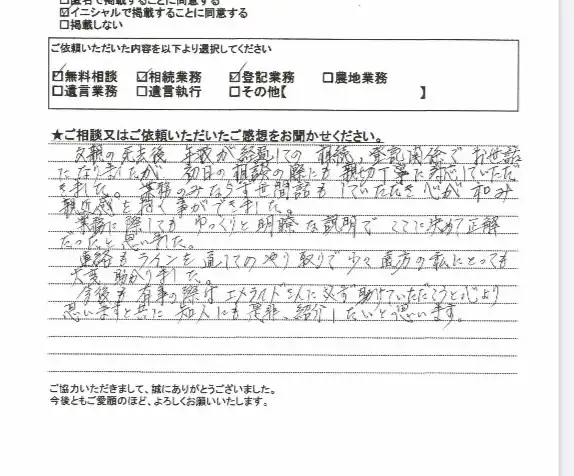 □匿名で掲載することに同意する
☑イニシャルで掲載することに同意する
□掲載しない
ご依頼いただいた内容を以下より選択してください
☑無料相談 ☑相続業務 ☑登記業務 □農地業務
□遺言業務 □遺言執行 □その他【 】
★ご相談又はご依頼いただいたご感想をお聞かせください。
父親の死去後 年数が経過しての 相続、登記関係で お世話
になりましたが 初日の相談の際にも 親切丁寧に対応していただ
きました。業務のみならず世間話も していただき 心が 和み
親近感を持つ事ができました。
業務に際しても ゆっくりと明瞭な説明で ここに決めて正解
だったと思いました。
連絡もラインを通してのやり取りで 少々遠方の私にとっても
大変助かりました。
今後も有事の際は エメライドさんに必ず助けていただこうと心より
思いますと共に 知人にも是非、紹介したいと思います。
ご協力いただきまして、誠にありがとうございました。
今後ともご愛顧のほど、よろしくお願いいたします。